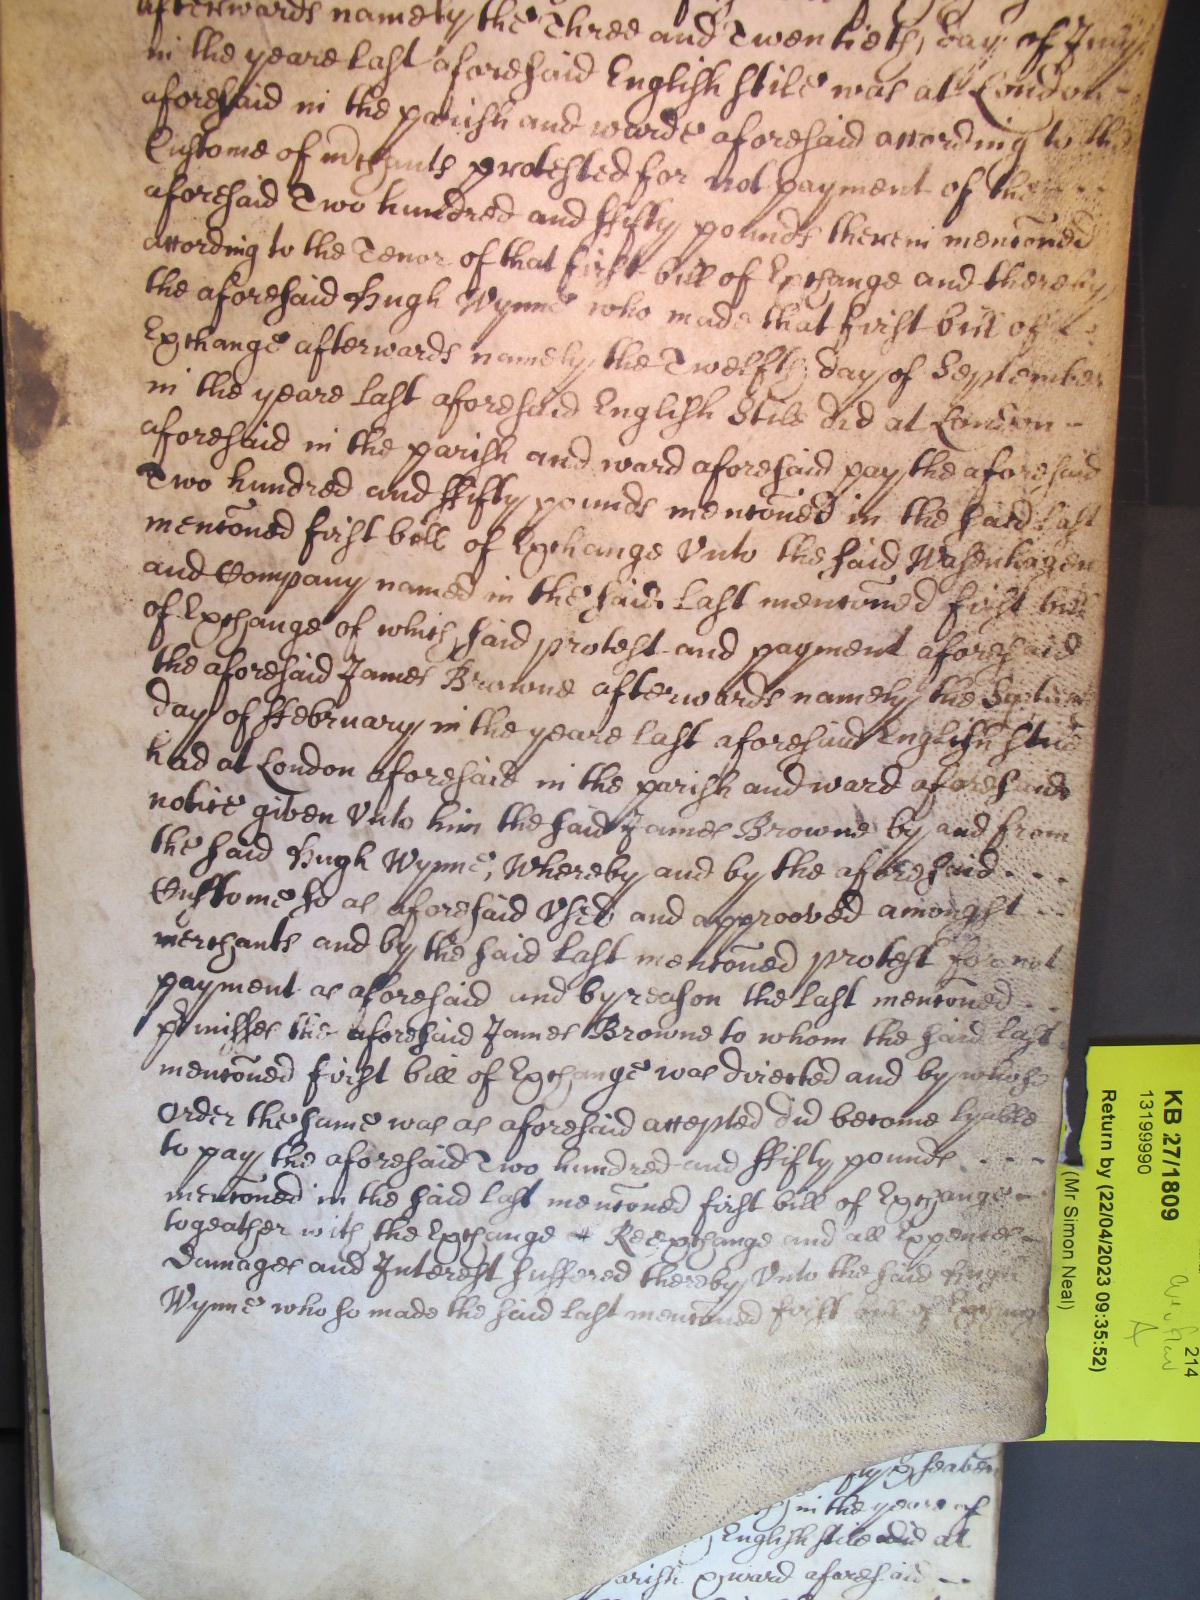 afterwards namely the Three and Twentieth day of
in the yeare last aforesaid English stile was at London
aforesaid in the parish and warde aforesaid according to the
Custome of mrchants protested for not payment of the
aforesaid Two hundred and ffifty pounds therein menconed
according to the Tenor of that first bill of Exchange and thereby
the aforesaid Hugh Wynne who made that first bill of
Exchange afterwards namely the Twelfth day of September
in the yeare last aforesaid English Stile did at London
aforesaid in the parish and ward aforesaid pay the aforesaid
Two hundred and ffifty pounds menconed in the said last
menconed first bill of Exchange Unto the said Wasenhagen
and Company named in the said Last menconed first bill
of Exchange of which said protest and payment aforesaid
the aforesaid James Browne afterwards namely the
day of ffebruary in the yeare last aforesaid English stile
had at London aforesaid in the parish and ward aforesaid
notice given Unto him the said James Browne by and from
the said Hugh Wynne, Whereby and by the aforesaid
Custome so as aforesaid Used and approoved amongst
merchants and by the said last menconed protest for not
payment as aforesaid and by reason the last menconed
pmisses the aforesaid James Browne to whom the said last
menconed first bill of Exchange was directed and by whose
Order the same was as aforesaid accepted did become lyable
to pay the aforesaid Two hundred and ffifty pounds
menconed in the said last menconed first bill of Exchange
togeather with the Exchange & Reexchange and all Expences
Damages and Interest suffered thereby Unto the said Hugh
Wynne who so made the said last menconed first bill of Exchange
in the yeare of
English stile did at
parish & ward aforesaid
KB 27/1809
13199990
Return by (22/04/2023 09:35:52)
(Mr Simon Neal)
214
A